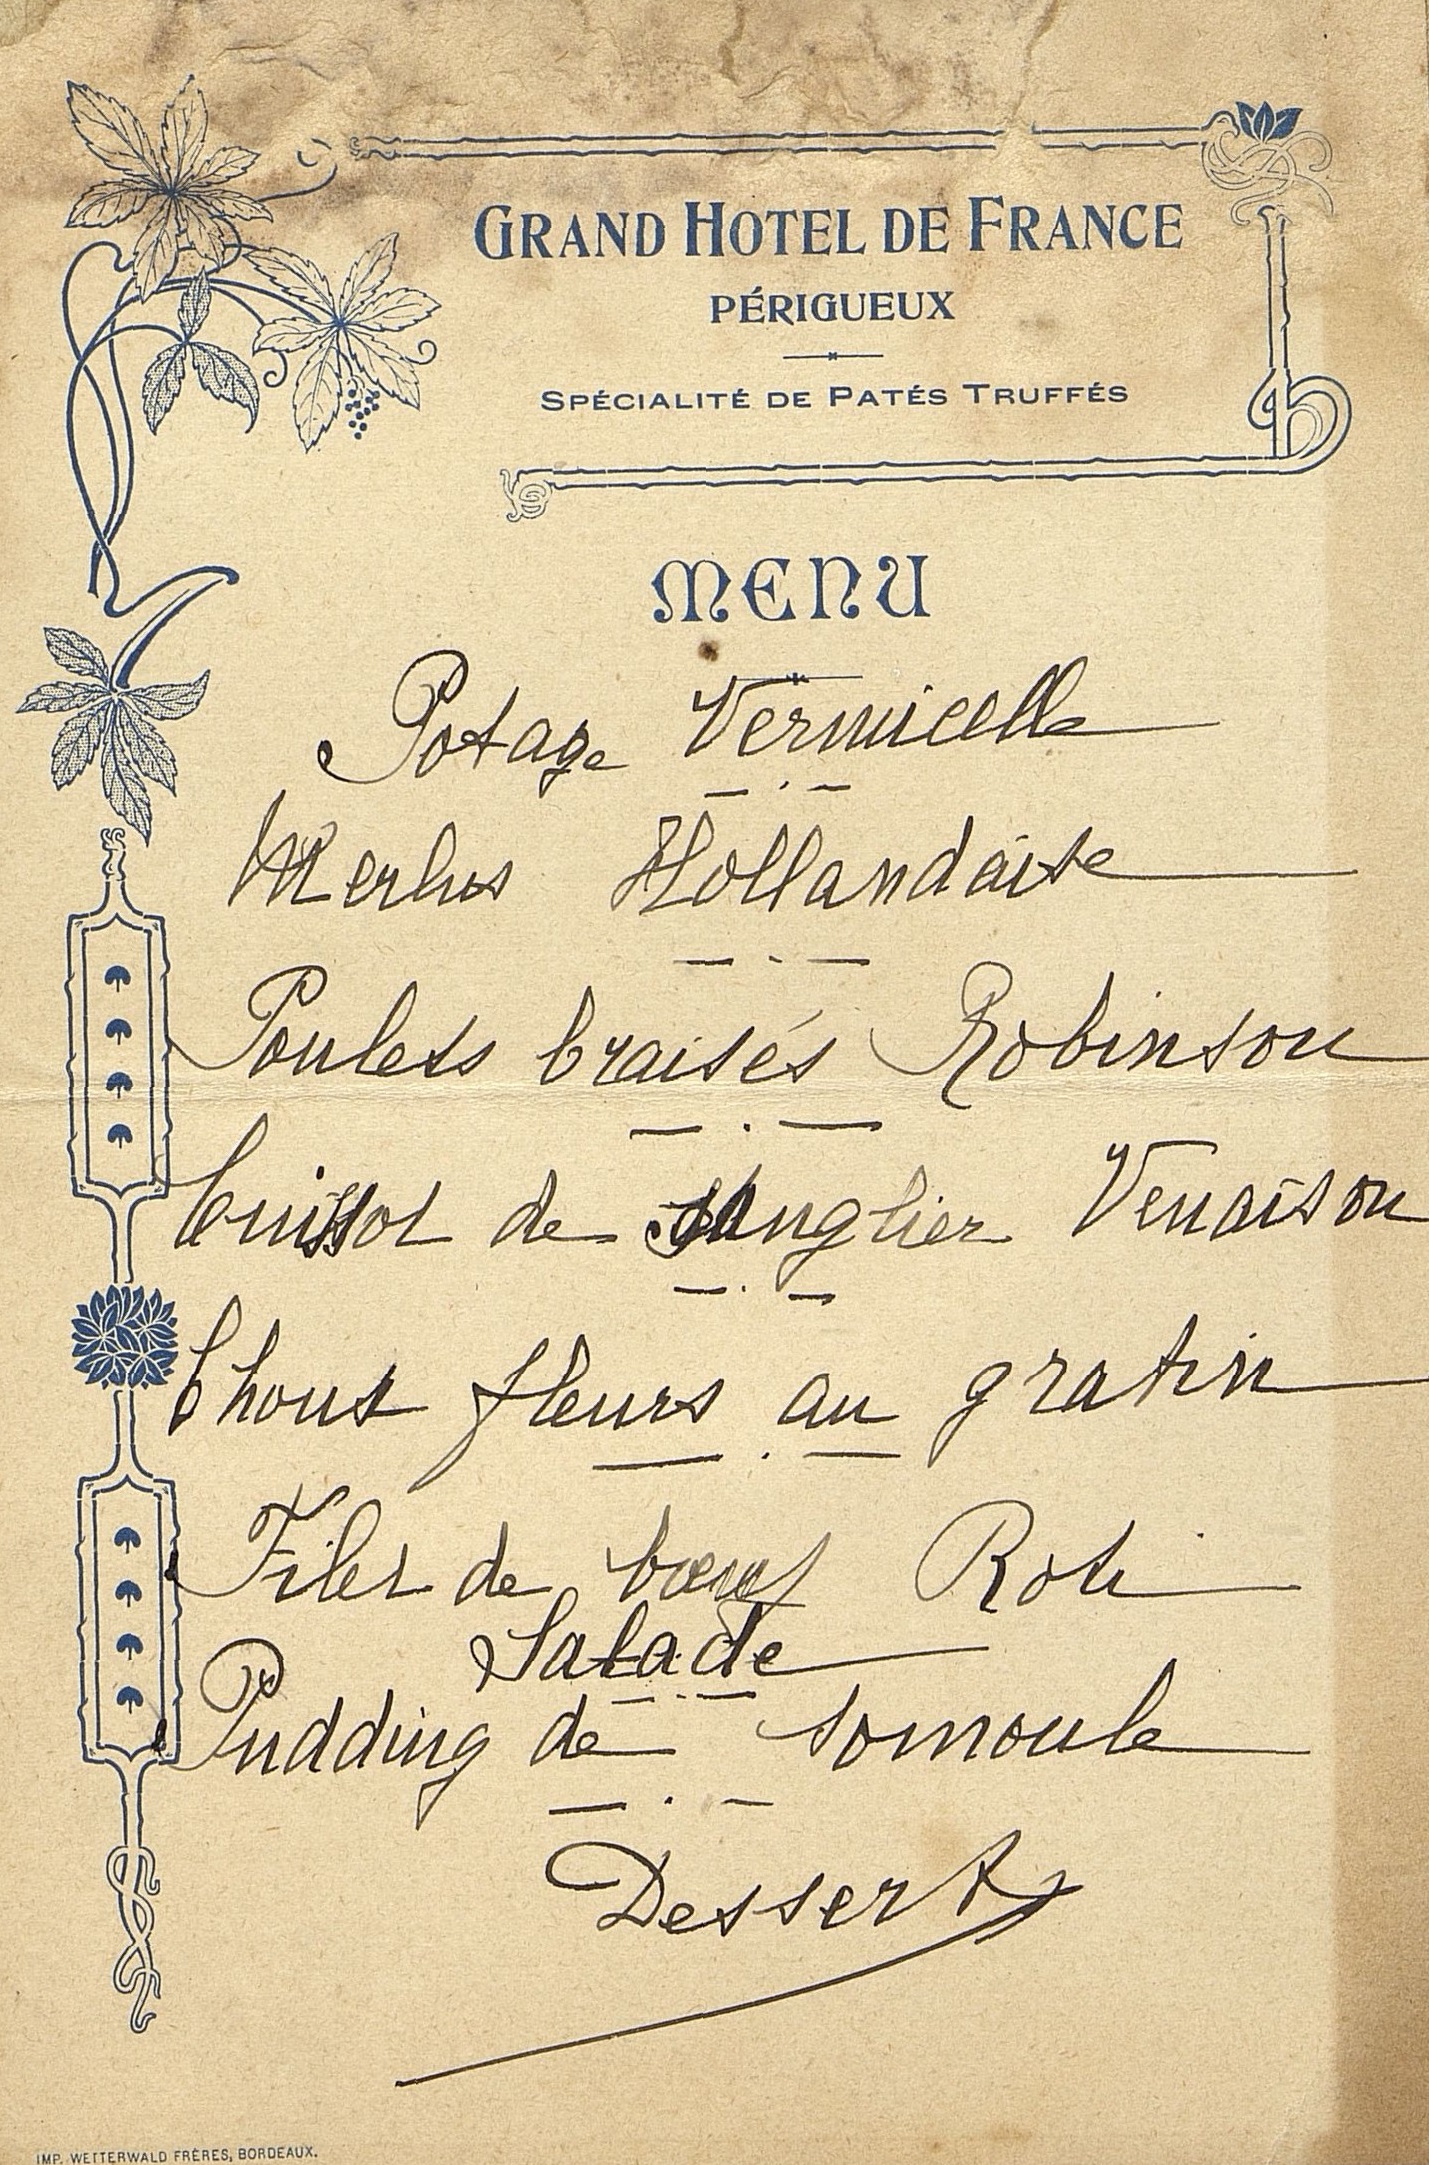 GRAND HOTEL DE FRANCE
PÉRIGUEUX
SPÉCIALITÉ DE PATÉS TRUFFÉS
MENU
Potage Vermicelle
Merlus Hollandaise
Poulets braisés Robinson
Cuissot de sanglier Venaison
Choux fleurs au gratin
Filet de bœuf Roti
Salade
Pudding de somoule
Desserts
IMP. WETTERWALD FRÈRES, BORDEAUX.